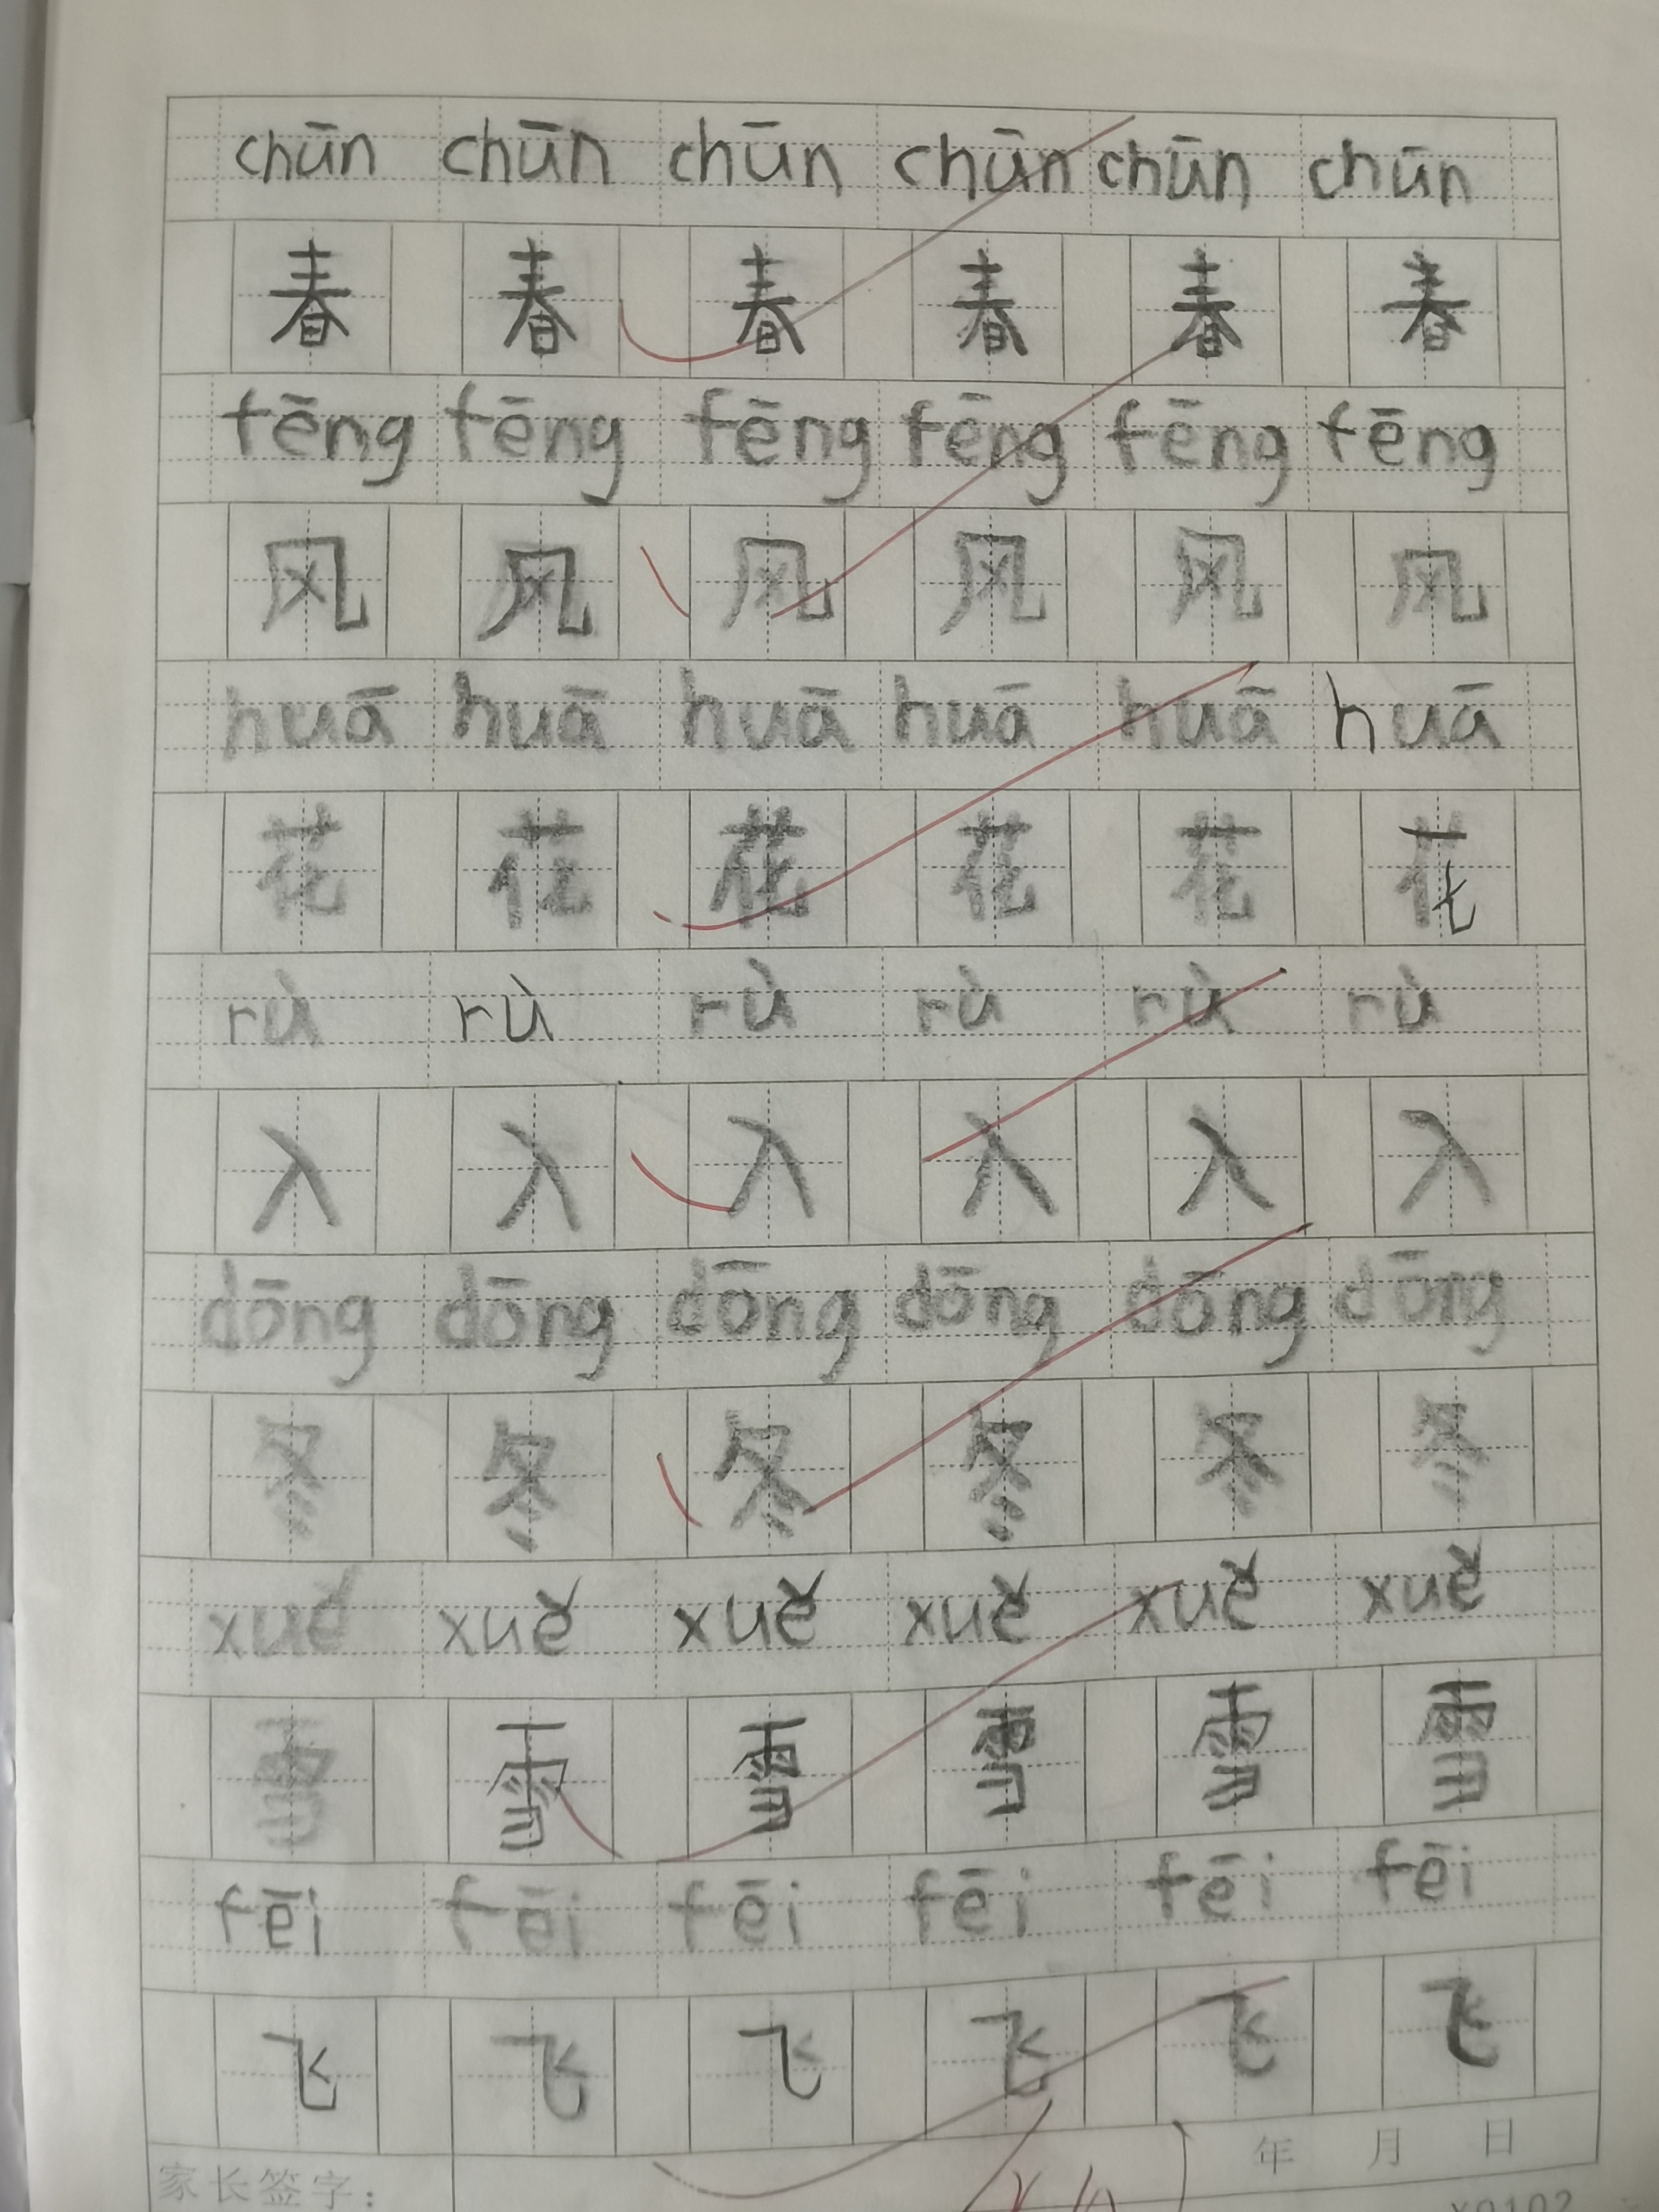 chūn chūn chūn chūn chūn chūn
春 春 春 春 春 春
fēng fēng fēng fēng fēng fēng
风 风 风 风 风 风
huā huā huā huā huā huā
花 花 花 花 花 花
rù rù rù rù rù rù
入 入 入 入 入 入
dōng dōng dōng dōng dōng dōng
冬 冬 冬 冬 冬 冬
xuě xuě xuě xuě xuě xuě
雪 雪 雪 雪 雪 雪
fēi fēi fēi fēi fēi fēi
飞 飞 飞 飞 飞 飞
年 月 日
家长签字：